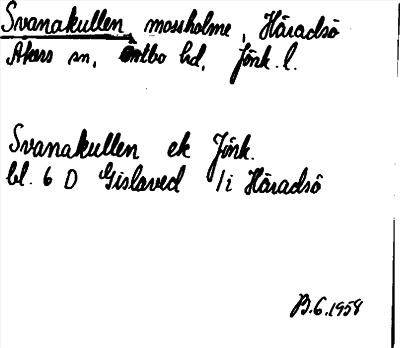 Svanakullen, mossholme, Häradsö
Åkers sn, Östbo hd, Jönk. l.
Svanakullen ek Jönk.
bl. 6 D Gislaved 1 i Häradsö
B.G. 1958